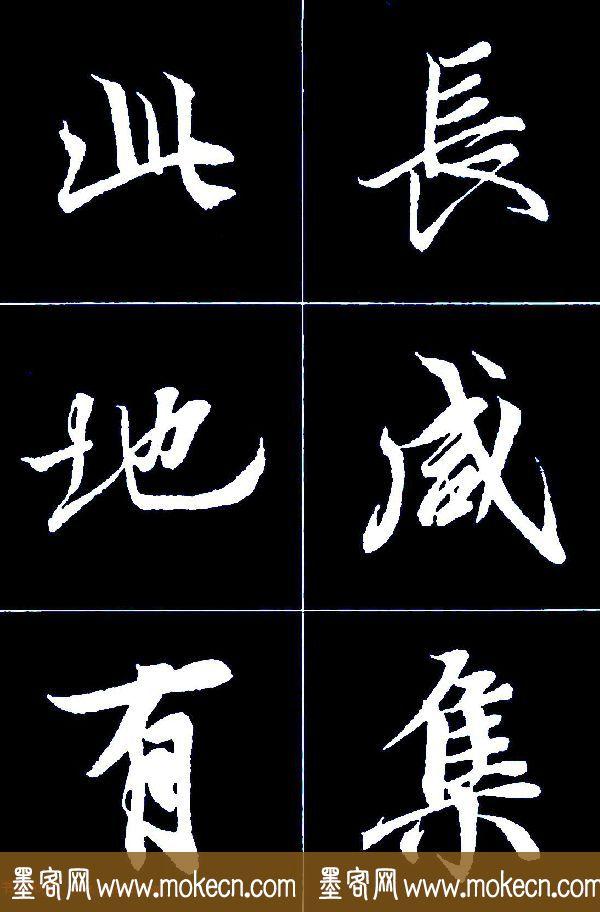 長咸集
此地有
墨客网 www.mokecn.com 墨客网 www.mokecn.com